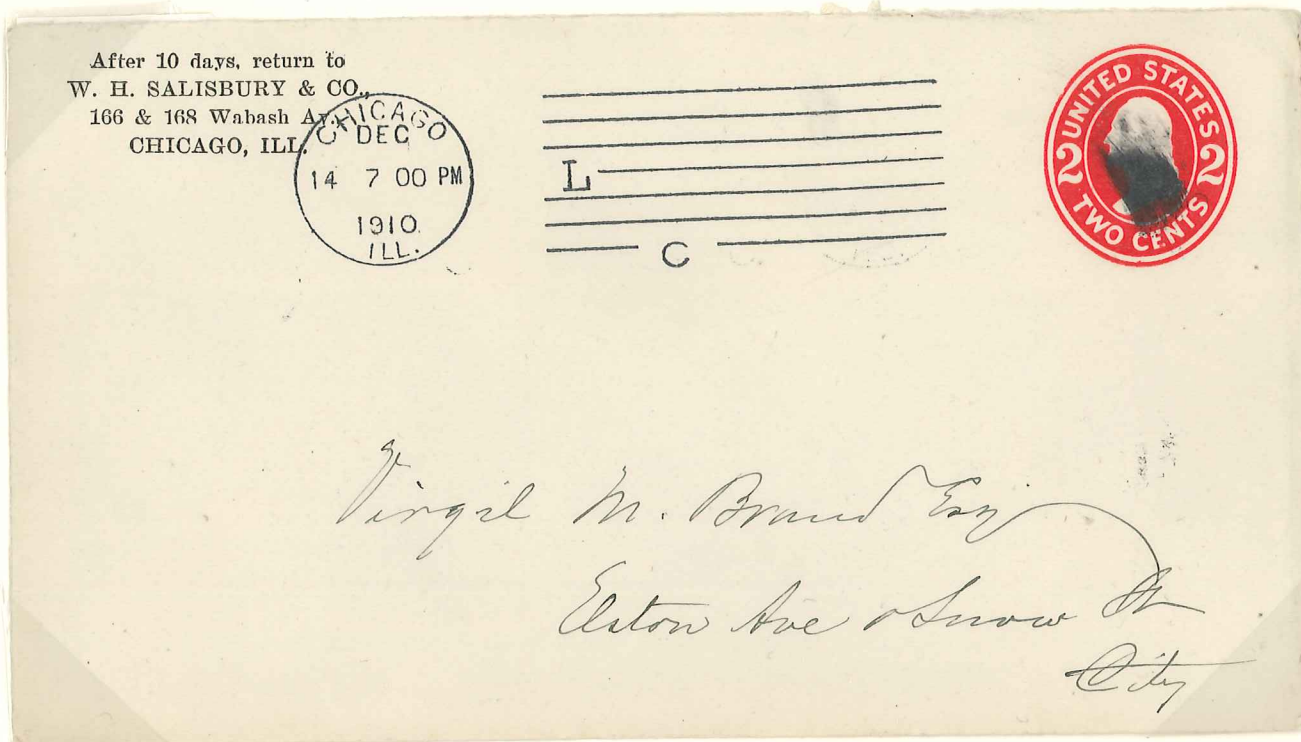 After 10 days, return to
W. H. SALISBURY & CO.,
166 & 168 Wabash Av.,
CHICAGO, ILL.
CHICAGO
DEC
14 7 00 PM
1910
ILL.
L
C
UNITED STATES
2 2
TWO CENTS
Virgil M. Brand Esq
Elston Ave & Snow St
City